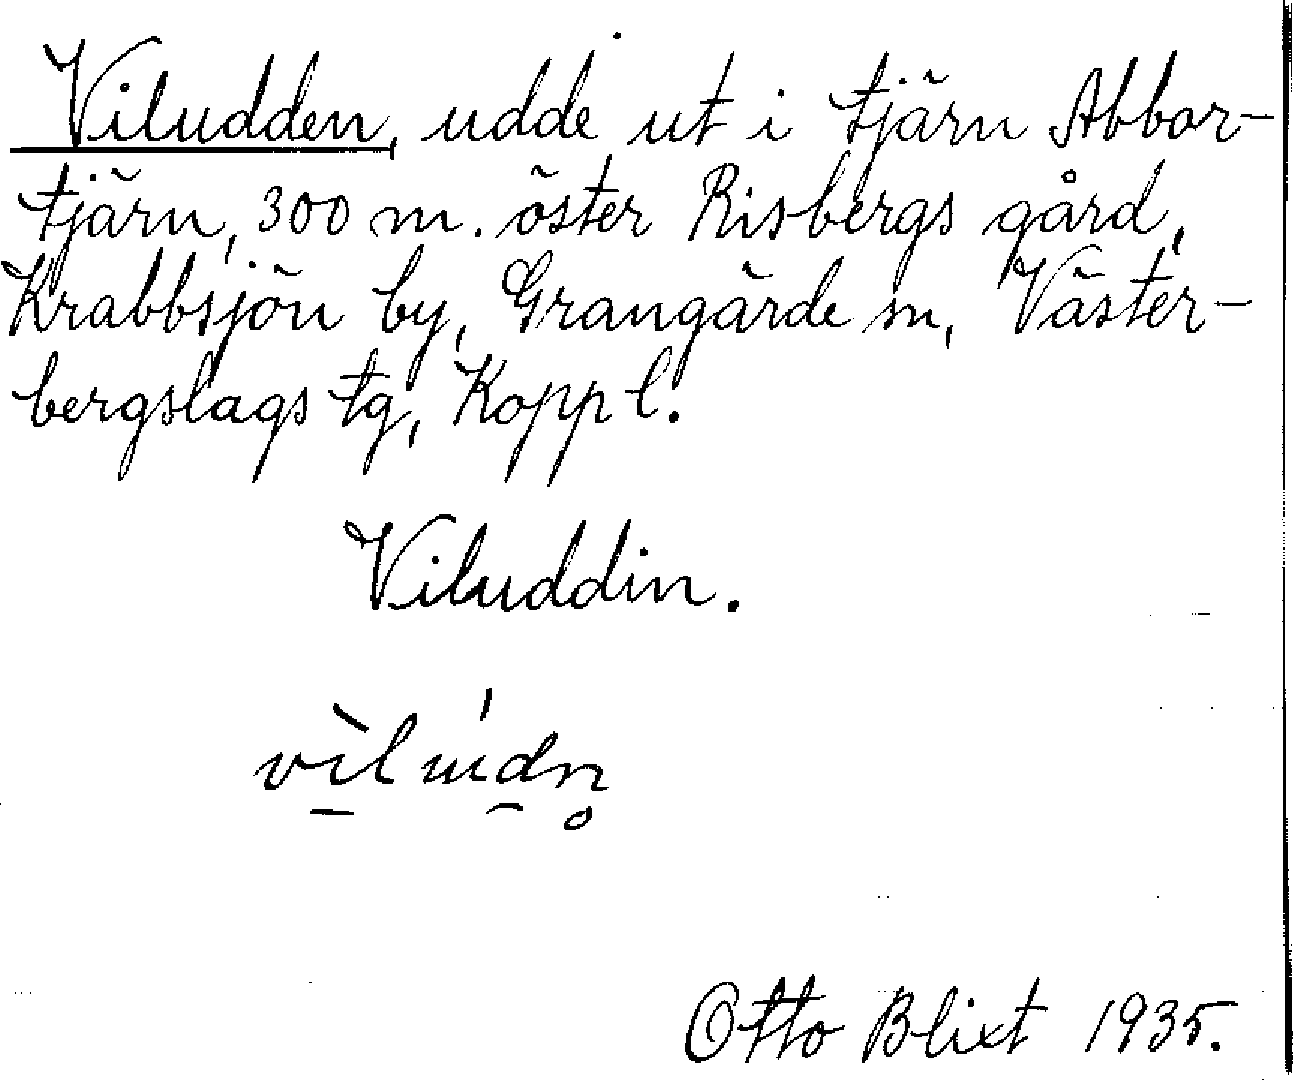 Viludden, udde ut i tjärn Abbor-
tjärn, 300 m. öster Risbergs gård,
Krabbsjön by, Grangärde sn, Väster-
bergslags tg, Kopp l.
Viluddin.
Otto Blixt 1935.